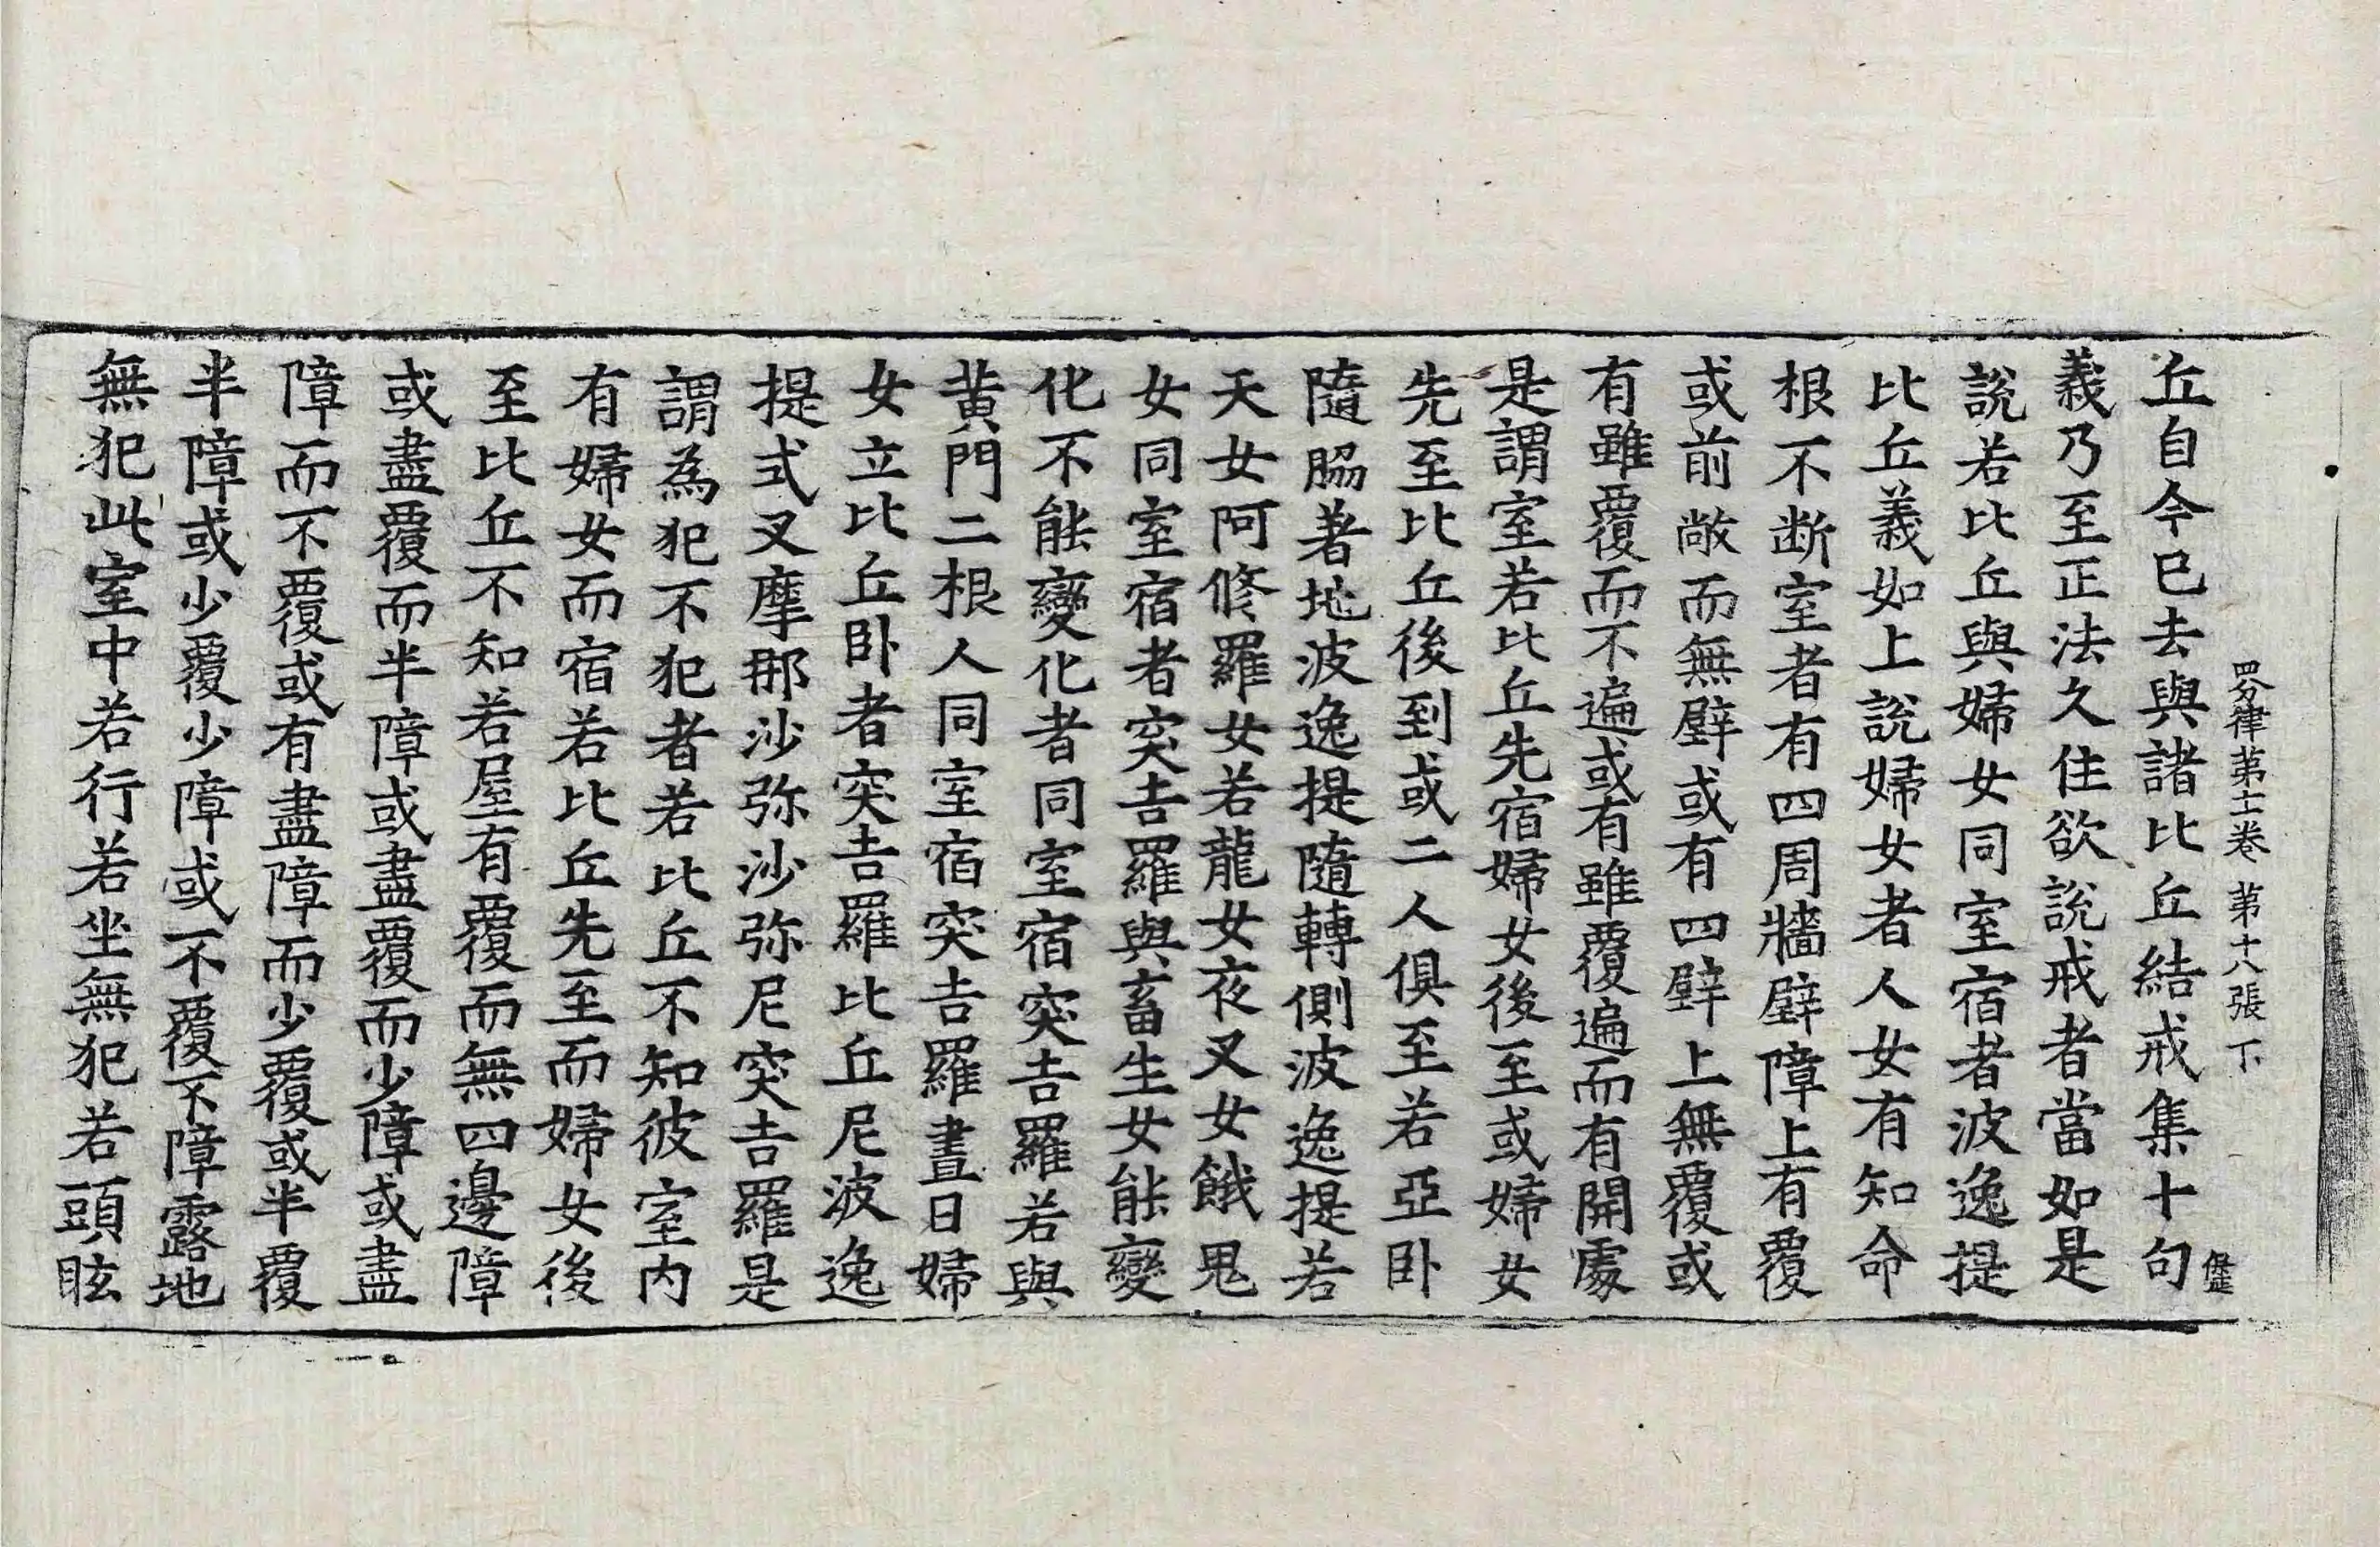 四分律第十一卷 第十八張 下
丘自今已去與諸比丘結戒集十句
義乃至正法久住欲說戒者當如是
說若比丘與婦女同室宿者波逸提
比丘義如上說婦女者人女有知命
根不断室者有四周牆壁障上有覆
或前敞而無壁或有四壁上無覆或
有雖覆而不遍或有雖覆遍而有開處
是謂室若比丘先宿婦女後至或婦女
先至比丘後到或二人俱至若亞卧
隨脇著地波逸提隨轉側波逸提若
天女阿修羅女若龍女夜叉女餓鬼
女同室宿者突吉羅與畜生女能變
化不能變化者同室宿突吉羅若與
黄門二根人同室宿突吉羅晝日婦
女立比丘卧者突吉羅比丘尼波逸
提式叉摩那沙弥沙弥尼突吉羅是
謂為犯不犯者若比丘不知彼室内
有婦女而宿若比丘先至而婦女後
至比丘不知若屋有覆而無四邊障
或盡覆而半障或盡覆而少障或盡
障而不覆或有盡障而少覆或半覆
半障或少覆少障或不覆不障露地
無犯此室中若行若坐無犯若頭眩